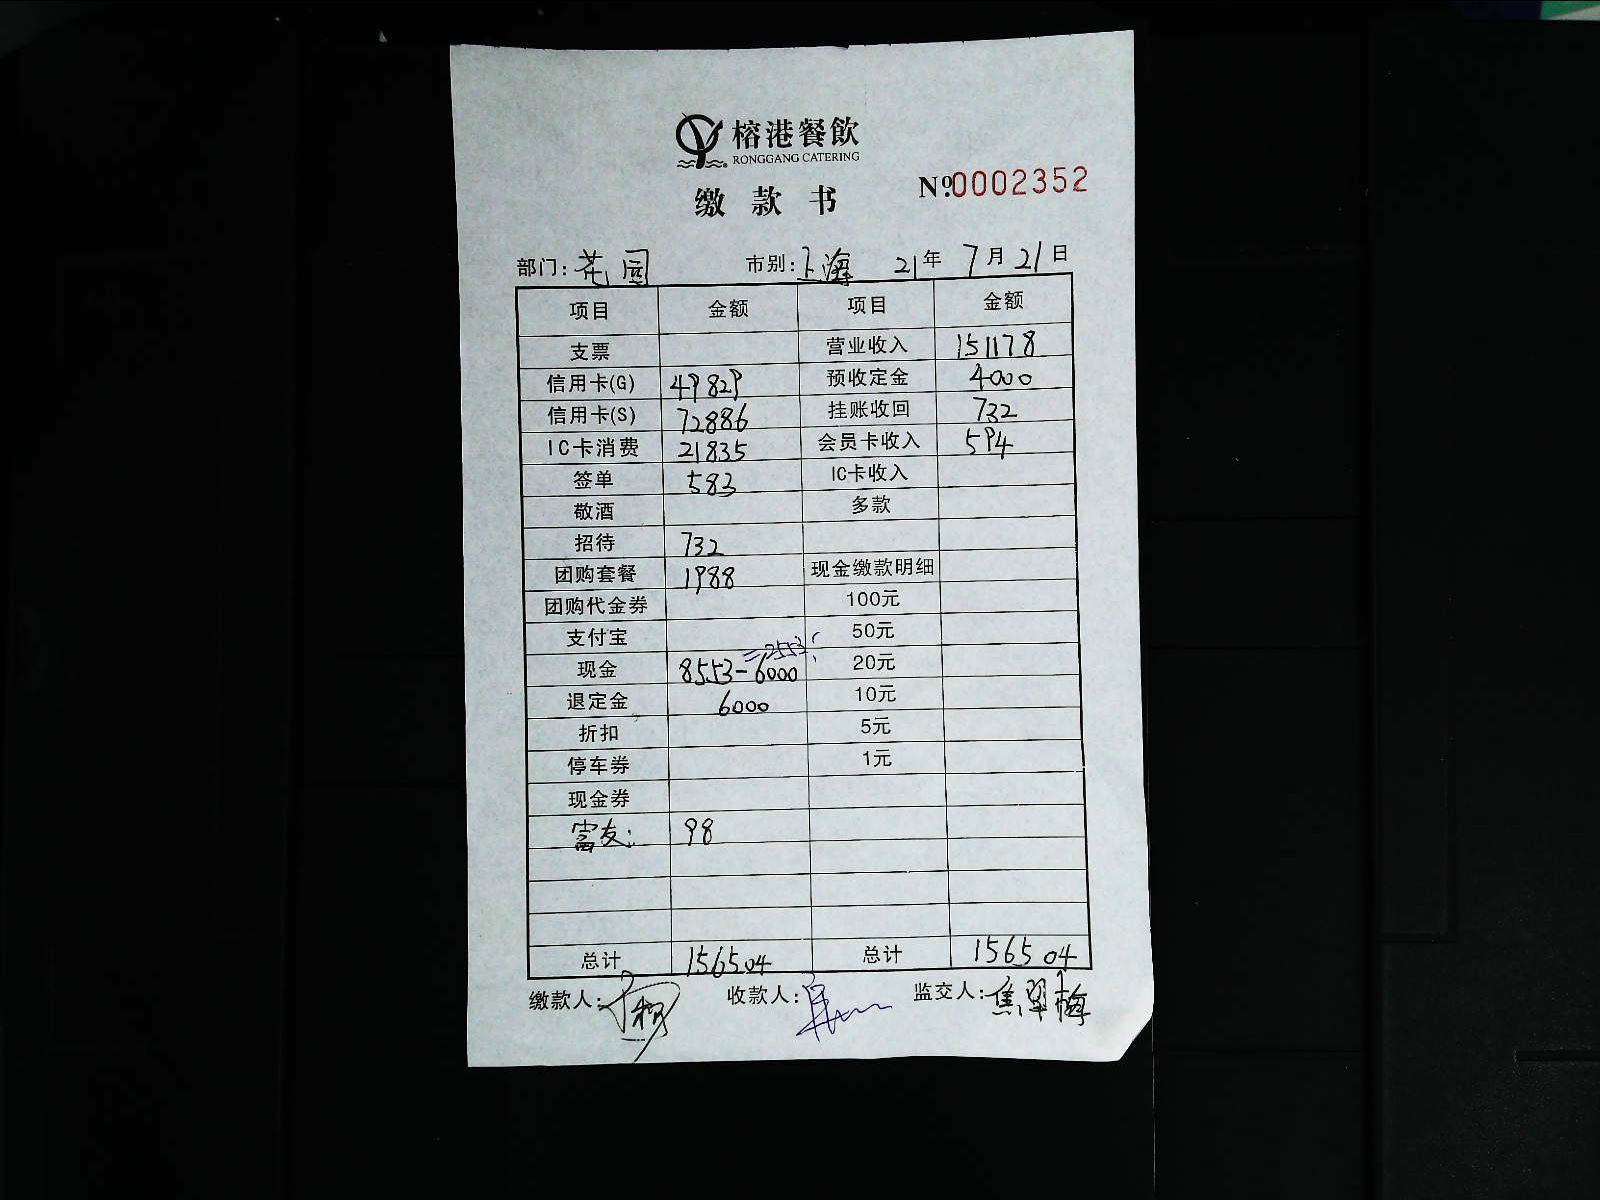 榕港餐飲
RONGGANG CATERING
缴款书 №0002352
部门: 花园 市别: 上海 21年7月21日
项目 金额 项目 金额
支票 营业收入 151178
信用卡(G) 49829 预收定金 4000
信用卡(S) 72886 挂账收回 732
IC卡消费 21835 会员卡收入 594
签单 583 IC卡收入
敬酒 多款
招待 732
团购套餐 1988 现金缴款明细
团购代金券 100元
支付宝 50元
现金 8553-6000 =2553 20元
退定金 6000 10元
折扣 5元
停车券 1元
现金券
富友: 98
总计 156504 总计 156504
缴款人: 收款人: 监交人: 焦翠梅